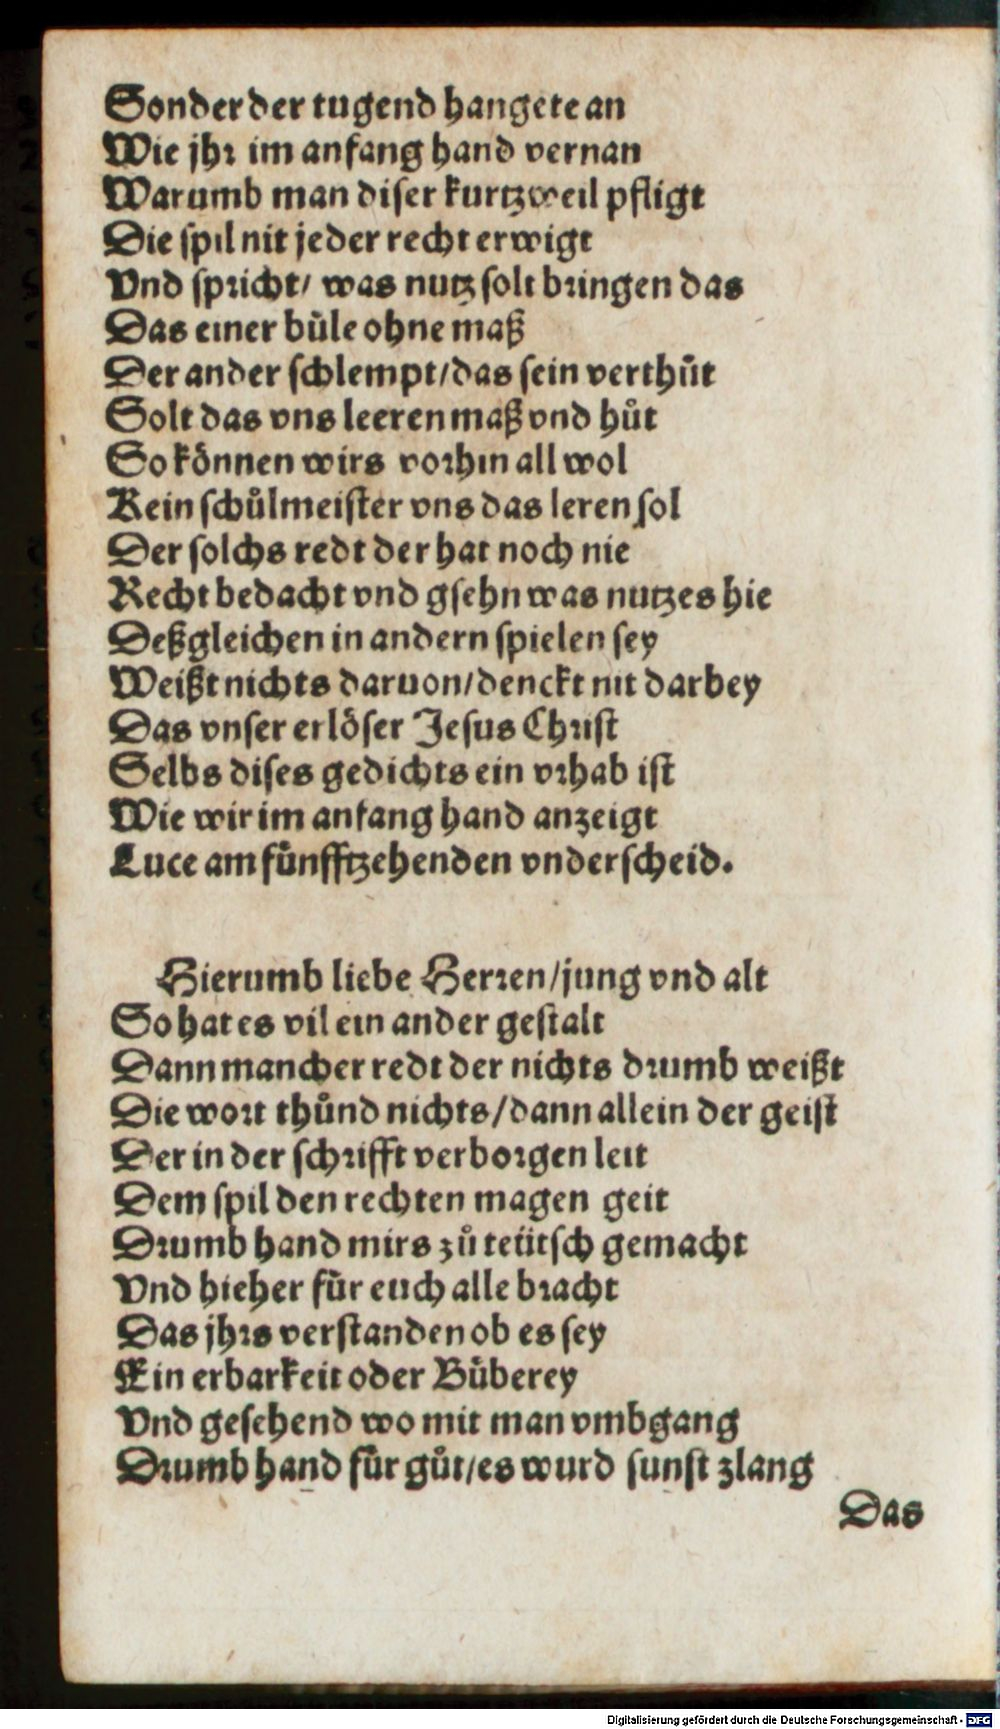 Sonder der tugend hangete an
Wie jhr im anfang hand vernan
Warumb man diser kurtzweil pfligt
Die spil nit jeder recht erwigt
Vnd spricht/ was nutz solt bringen das
Das einer bůle ohne maß
Der ander schlempt/das sein verthůt
Solt das vns leeren maß vnd hůt
So können wirs vorhin all wol
Kein schůlmeister vns das leren sol
Der solchs redt der hat noch nie
Recht bedacht vnd gsehn was nutzes hie
Deßgleichen in andern spielen sey
Weißt nichts daruon/denckt nit darbey
Das vnser erlöser Jesus Christ
Selbs dises gedichts ein vrhab ist
Wie wir im anfang hand anzeigt
Luce am fünfftzehenden vnderscheid.
Hierumb liebe Herren/jung vnd alt
So hat es vil ein ander gestalt
Dann mancher redt der nichts drumb weißt
Die wort thůnd nichts/dann allein der geist
Der in der schrifft verborgen leit
Dem spil den rechten magen geit
Drumb hand mirs zů teütsch gemacht
Vnd hieher für euch alle bracht
Das jhrs verstanden ob es sey
Ein erbarkeit oder Bůberey
Vnd gesehend wo mit man vmbgang
Drumb hand für gůt/es wurd sunst zlang
Das
Digitalisierung gefördert durch die Deutsche Forschungsgemeinschaft - DFG